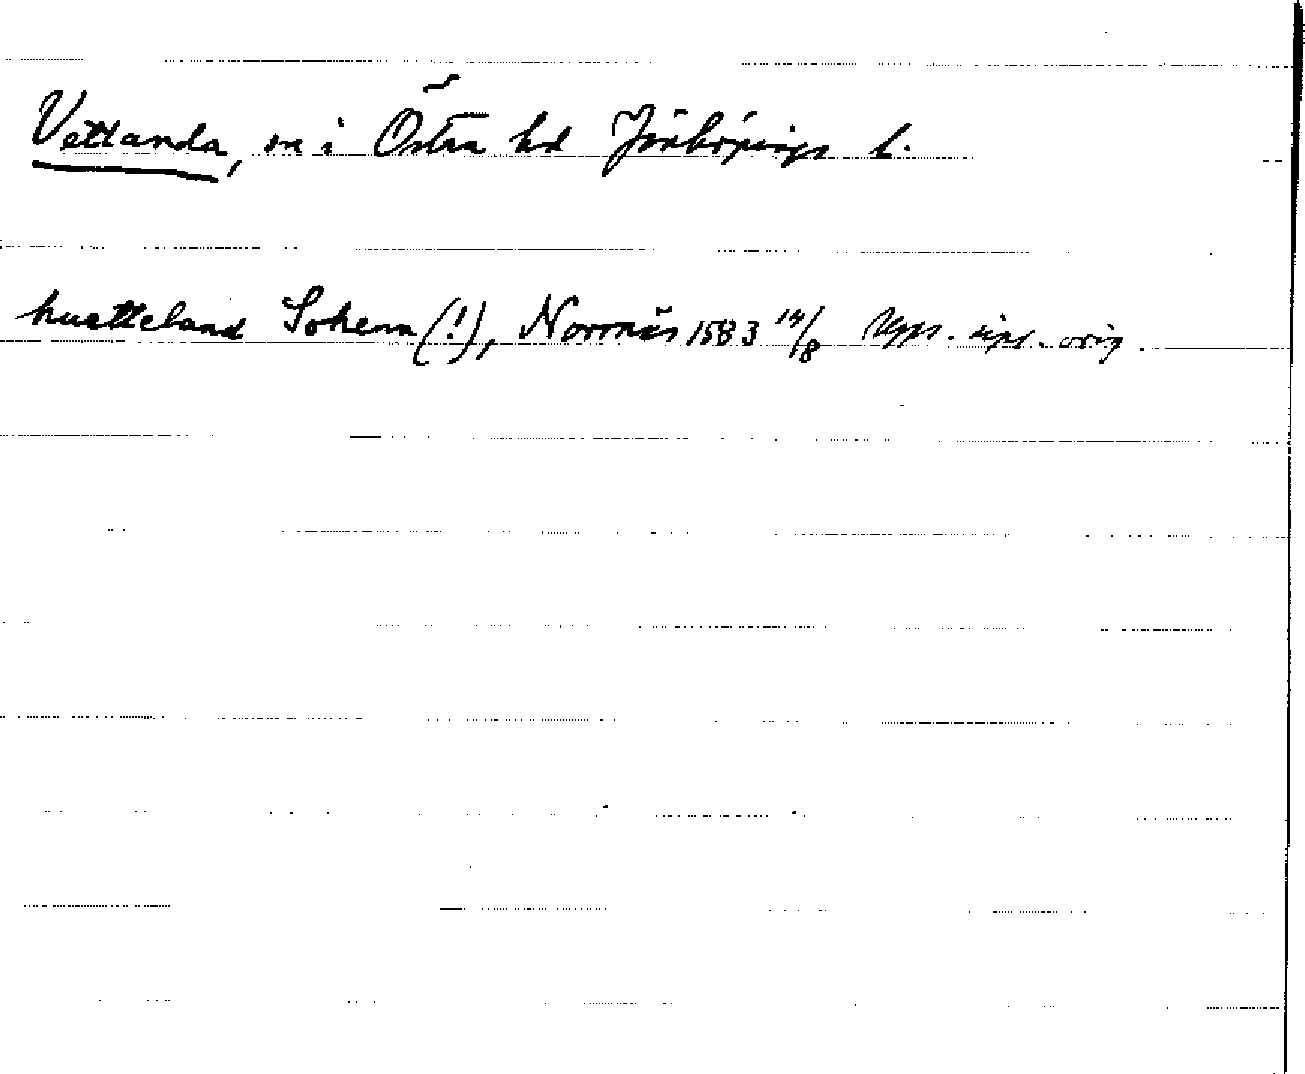 Vetlanda, sn i Östra hd Jönköpings l.
huetteland Sokenn (!), Norrnäs 1583 14/8 Upps. dipl. orig.